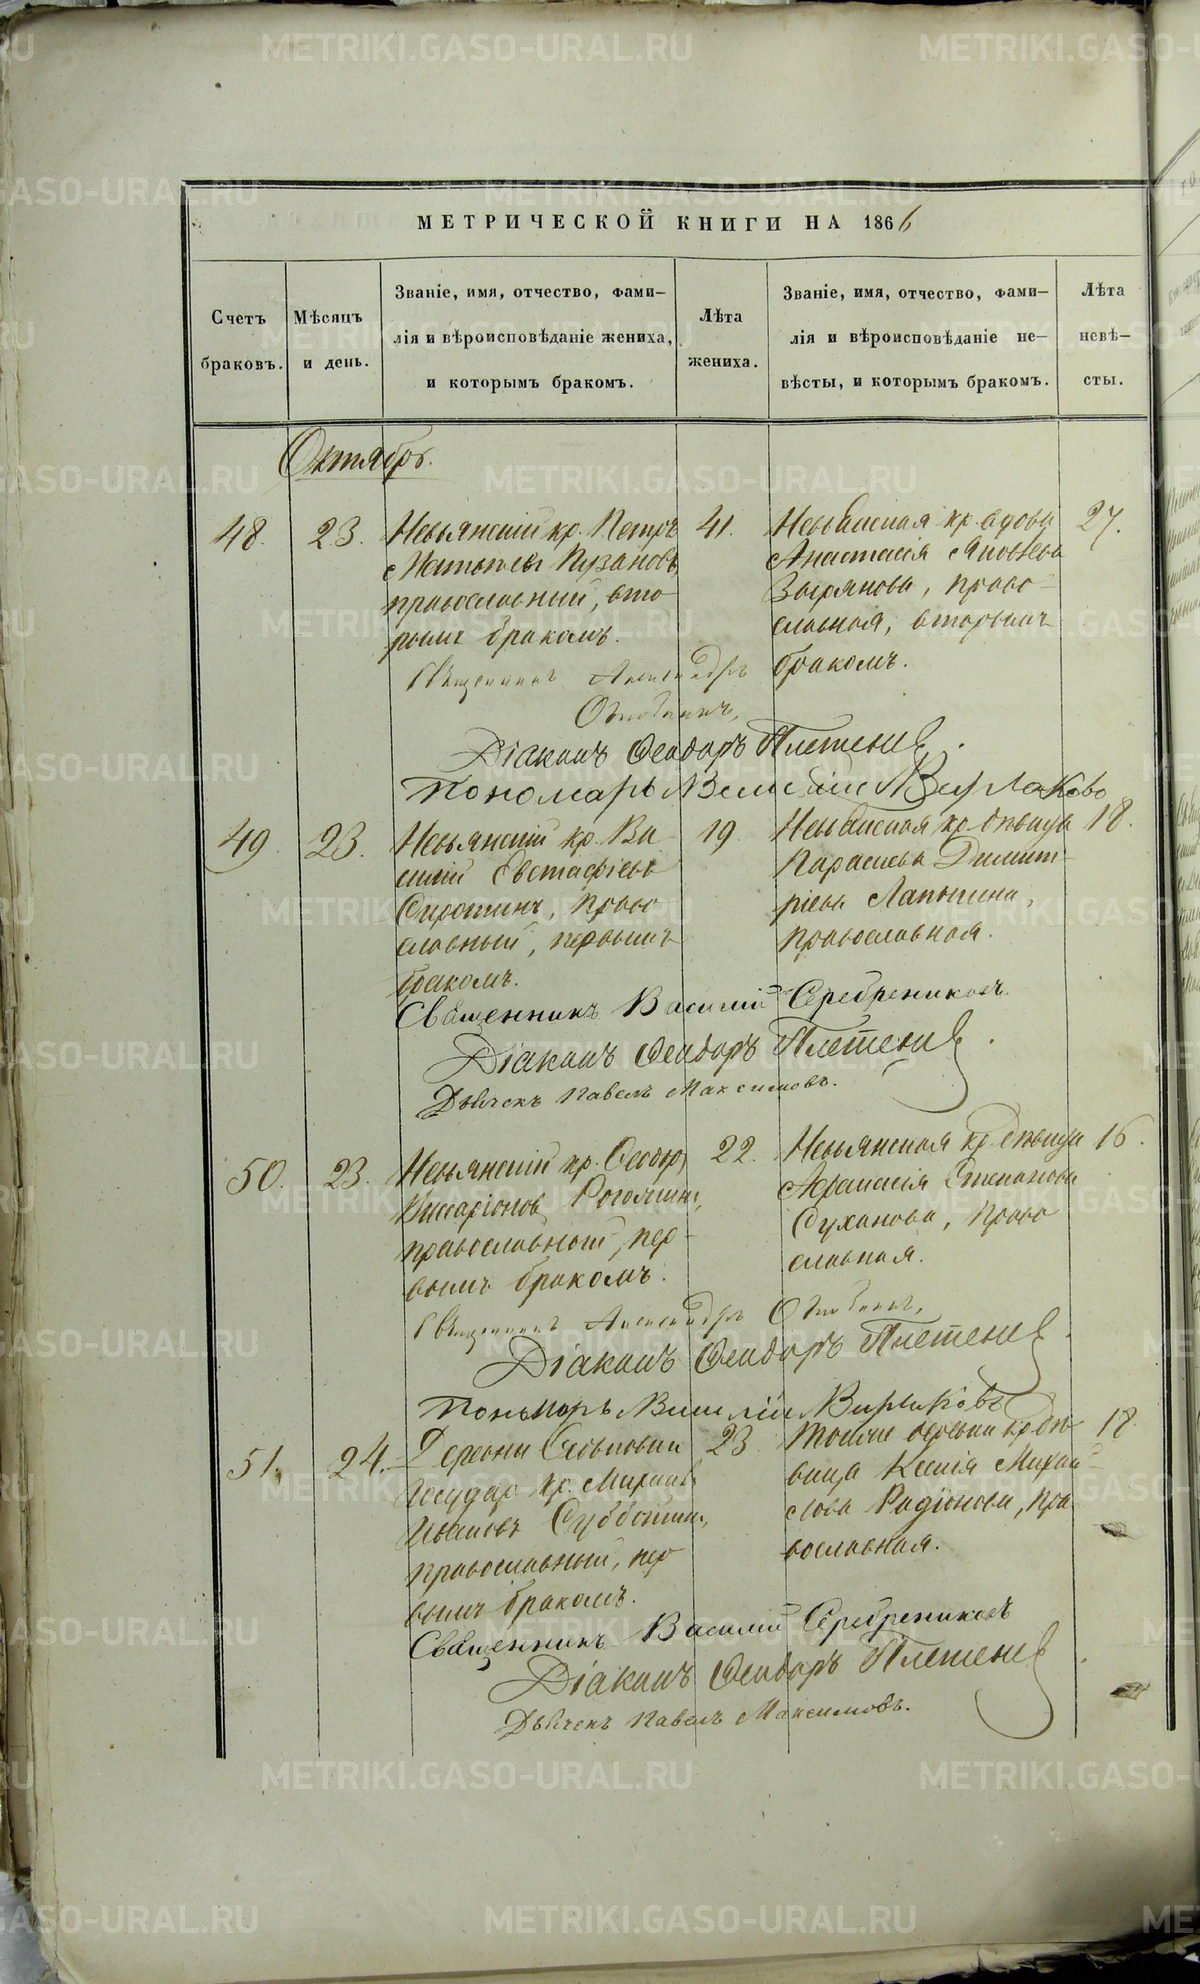 МЕТРИЧЕСКОЙ КНИГИ НА 1866
Счетъ браковъ.
Мѣсяцъ и день.
Званіе, имя, отчество, фами-
лія и вѣроисповѣданіе жениха,
и которымъ бракомъ.
Лѣта жениха.
Званіе, имя, отчество, фами-
лія и вѣроисповѣданіе не-
вѣсты, и которымъ бракомъ.
Лѣта невѣ-
сты.
Октябрь.
48. 23.
Невьянскій кр. Петръ
Матвѣевъ Пузановъ,
православный, вто-
рымъ бракомъ.
41.
Невьянская кр. вдова
Анастасія Яковлева
Зырянова, право-
славная, вторымъ
бракомъ.
27.
Священникъ Александръ
Діаконъ Феодоръ Плетенев
Пономарь Василій
49. 23.
Невьянскій кр. Ва
силій Евстафіевъ
Сиротинъ, право
славный, первымъ
бракомъ.
19.
Невьянская кр. дѣвица
Параскева Димит-
ріева Лапшина,
православная.
18.
Священникъ Василій Серебрениковъ.
Діаконъ Феодоръ Плетенев
Дьячекъ Павелъ Максимовъ.
50. 23.
Невьянскій кр. Феодоръ
Виссаріоновъ
православный, пер-
вымъ бракомъ.
22.
Невьянская кр. дѣвица
Афанасія Степанова
Суханова, право
славная.
16.
Священникъ Александръ
Діаконъ Феодоръ Плетенев
Пономарь Василій
51. 24.
Деревни
Государ. кр.
Ивановъ Субботинъ,
православный, пер
вымъ бракомъ.
23.
Той же деревни кр. дѣ-
вица Ксенія Михай-
лова Радіонова, пра
вославная.
18.
Священникъ Василій Серебрениковъ
Діаконъ Феодоръ Плетенев
Дьячекъ Павелъ Максимовъ.
METRIKI.GASO-URAL.RU